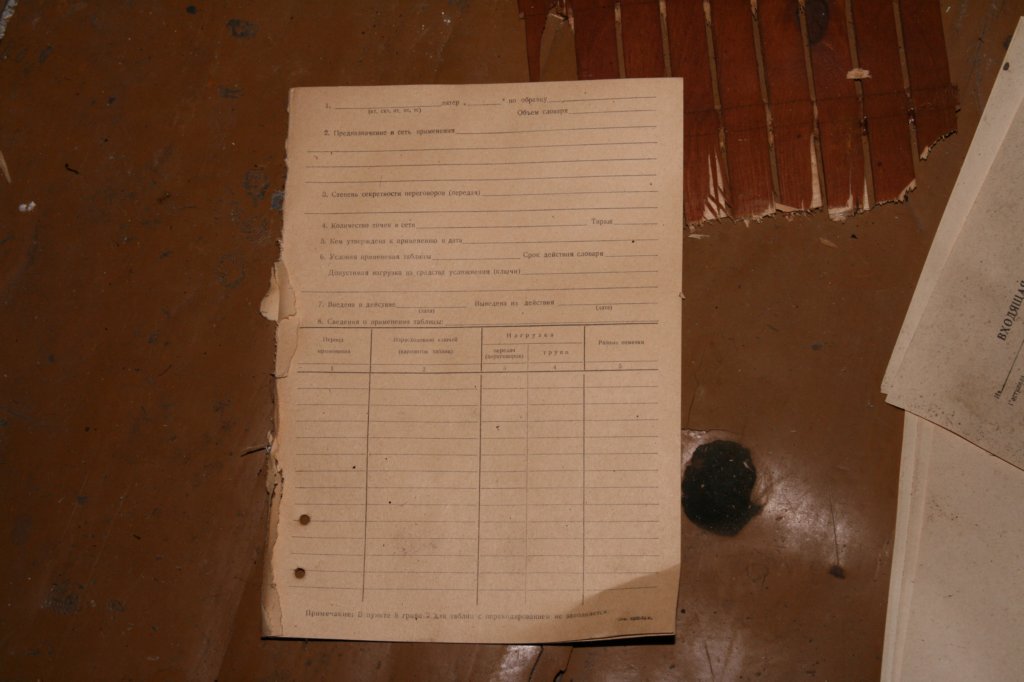 1. литер „ " по образцу
Объем словаря
2. Предназначение и сеть применения
3. Степень секретности переговоров (передач)
4. Количество точек в сети Тираж
5. Кем утверждена к применению и дата
6. Условия применения таблицы Срок действия словаря
Допустимая нагрузка на средства усложнения (ключи)
7. Введена в действие Выведена из действия
(дата) (дата)
8. Сведения о применении таблицы:
Период применения
Израсходовано ключей (вариантов таблиц)
Нагрузка
передач (переговоров)
групп
Разные отметки
1 2 3 4 5
Примечание: В пункте 8 графа 2 для таблиц с перекодированием не заполняется.
ВХОДЯЩАЯ